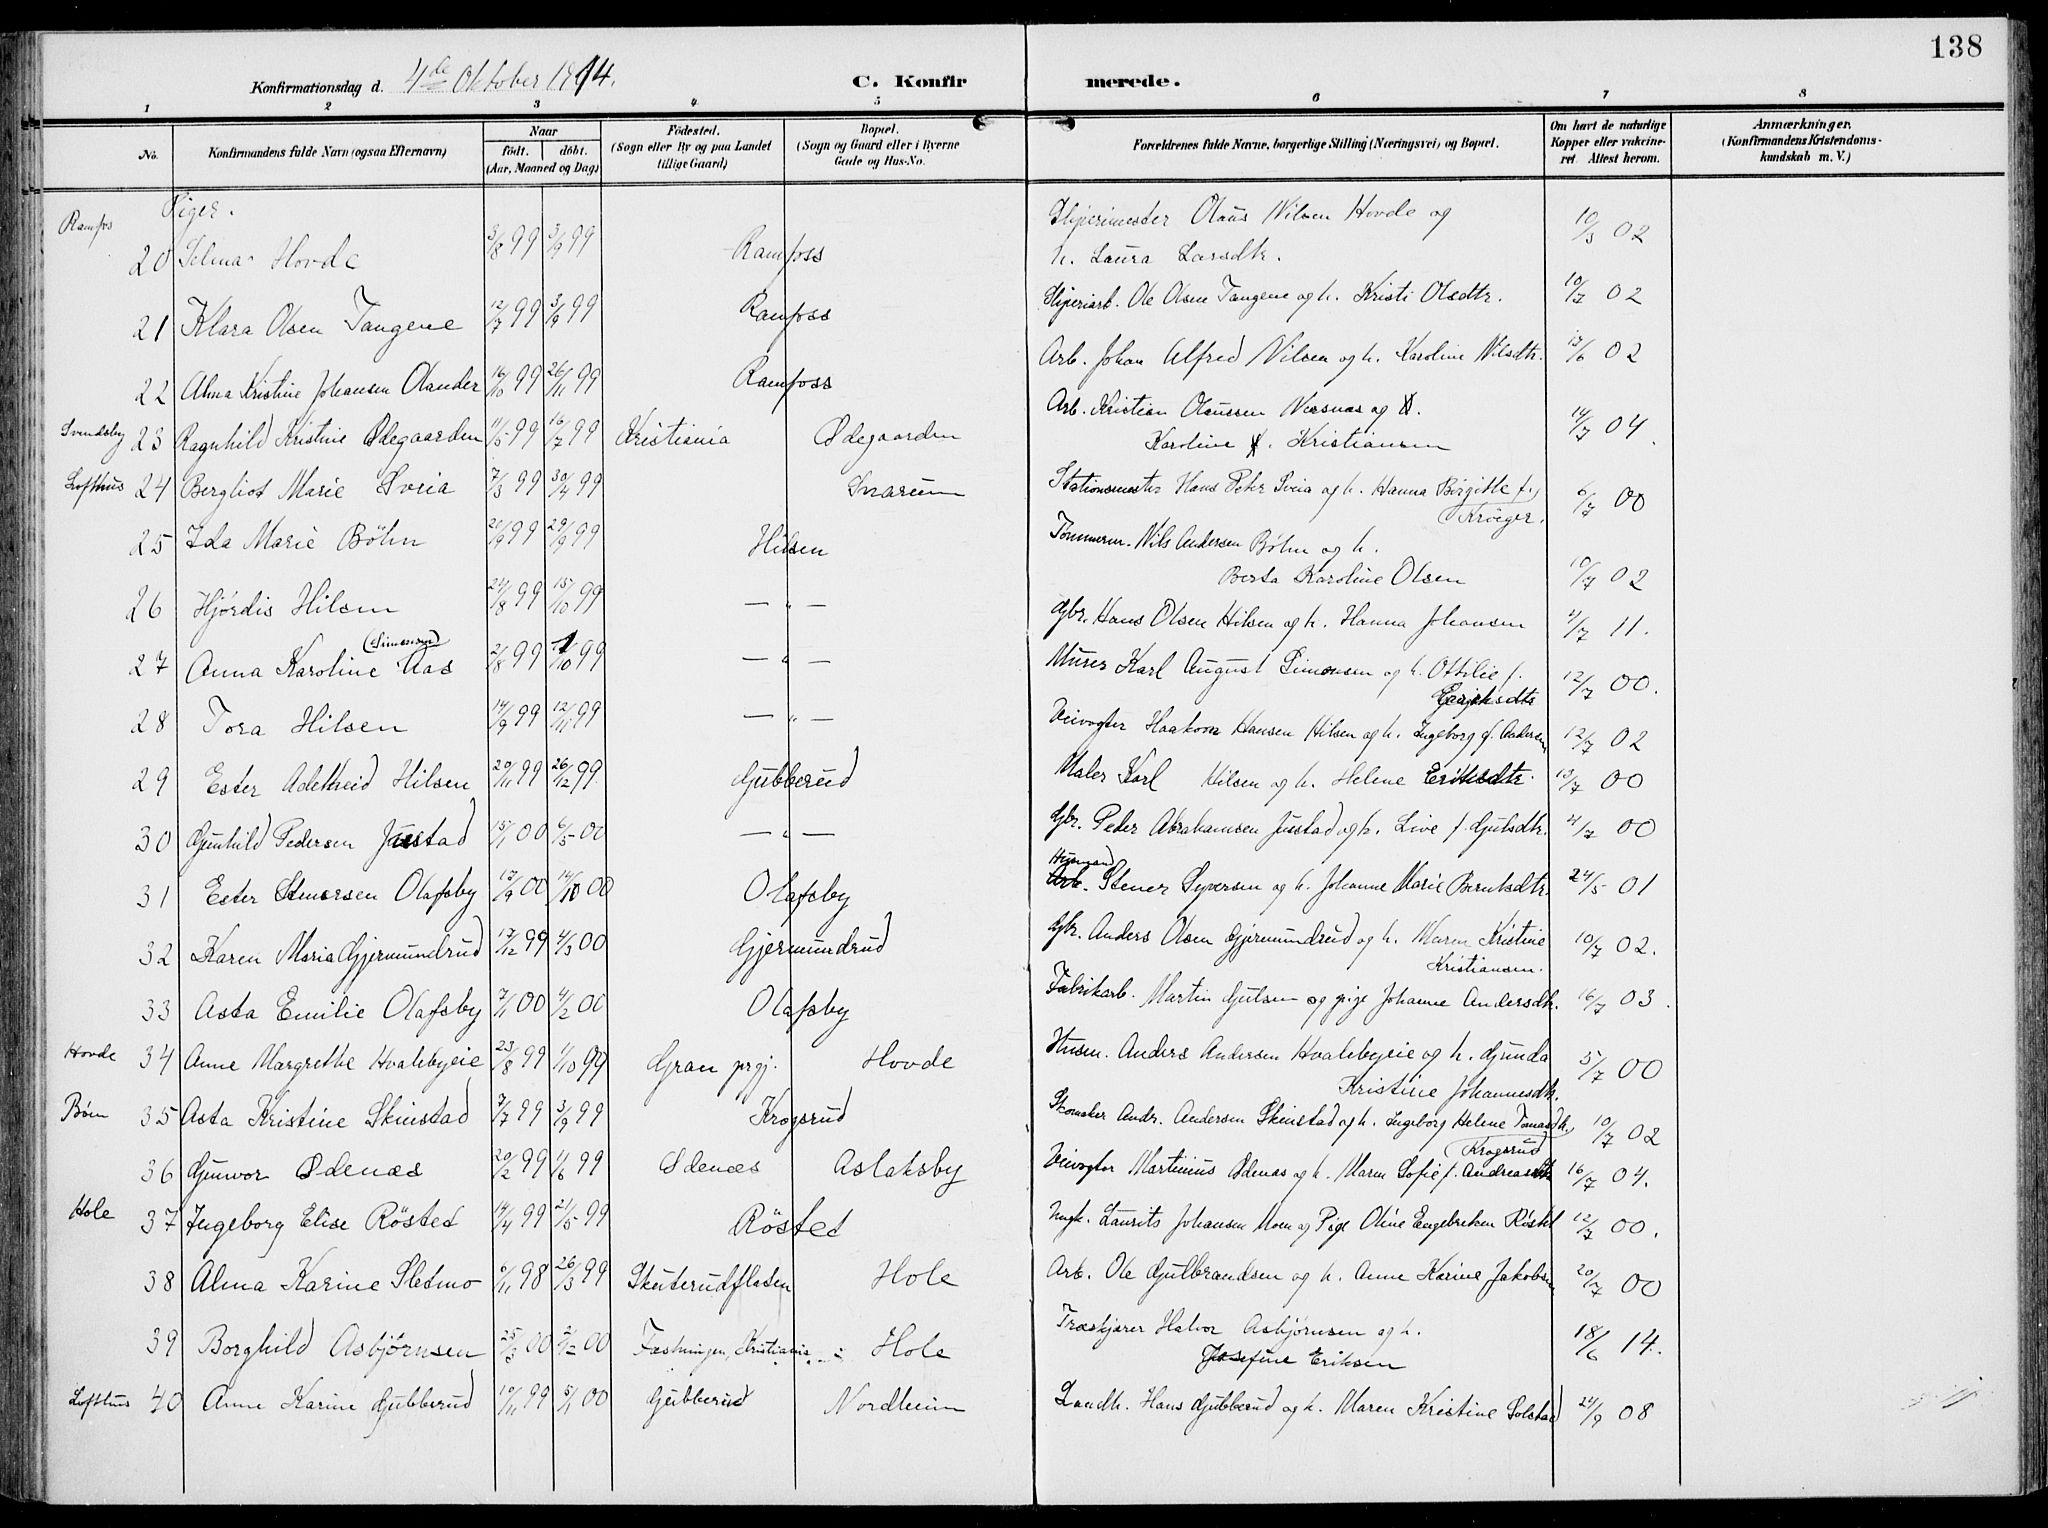 138
Konfirmationsdag d. 4de Oktober 1914. C. Konfirmerede.
1 2 3 4 5 6 7 8
No. Konfirmandens fulde Navn (ogsaa Efternavn) Naar født. døbt. (Aar, Maaned og Dag) Fødested. (Sogn eller By og paa Landet tillige Gaard) Bopæl. (Sogn og Gaard eller i Byerne Gade og Hus-No. Forældrenes fulde Navne, borgerlige Stilling (Næringsvei) og Bopæl. Om havt de naturlige Kopper eller vakcineret. Attest herom. Anmærkninger. (Konfirmandens Kristendomskundskab m. V.)
Piger.
Ramfos 20 Selma Hovde 3/8 99 3/9 99 Ramfoss Sliperimester Olaus Nilsen Hovde og 10/3 02
h. Laura Larsdtr.
21 Klara Olsen Tangene 12/7 99 3/9 99 Ramfoss Sliperiarb. Ole Olsen Tangene og h. Kristi Olsdtr. 10/7 02
22 Alma Kristine Johansen Olander 16/10 99 26/11 99 Ramfoss Arb. Johan Alfred Nilsen og h. Karoline Nilsdtr. 13/6 02
Svendsby 23 Ragnhild Kristine Ødegaarden 11/5 99 16/7 99 Kristiania Ødegaarden Arb. Kristian Olaussen Versnas og 14/7 04.
Karoline Kristiansen
Lofthus 24 Bergliot Marie Sveia 7/3 99 30/4 99 Snarum Stationsmester Hans Peter Sveia og h. Hanna Birgitte f. 6/7 00
Krøeger.
25 Ida Marie Bøhn 20/9 99 29/9 99 Hilsen Tømmerm. Nils Andersen Bøhn og h.
Berta Karoline Olsen 10/7 02
26 Hjørdis Hilsen 24/8 99 15/10 99 — " — Gbr. Hans Olsen Hilsen og h. Hanna Johansen 4/7 11.
27 Anna Karoline Aas (Simensen) 2/8 99 1/10 99 — " — Murer Karl August Simensen og h. Ottilie f. 12/7 00.
Eriksdtr
28 Tora Hilsen 14/9 99 12/11 99 — " — Veivogter Haakon Hansen Hilsen og h. Ingeborg f. Andersen 12/7 02
29 Ester Adelheid Hilsen 20/11 99 26/12 99. Gubberud Maler Karl Hilsen og h. Helene Eriksdtr. 13/7 00
30 Gunhild Pedersen Justad 15/1 00 6/5 00 — " — Gbr. Peder Abrahamsen Justad og h. Live f. Gulsdtr. 4/7 00
Husmand
31 Ester Stenersen Olafsby 17/9 00 14/10 00 Olafsby Arb. Stener Syversen og h. Johanne Marie Berntsdtr. 24/5 01
32 Karen Maria Gjermundrud 17/12 99 4/3 00 Gjermundrud Gbr. Anders Olsen Gjermundrud og h. Maren Kristine 10/7 02.
Kristiansen.
33 Asta Emilie Olafsby 7/1 00 4/2 00 Olafsby Fabrikarb. Martin Gulsen og pige Johanne Andersdtr. 16/7 03.
Hovde 34 Anne Margrethe Hvalebyeie 23/8 99 1/10 99 Gran prgj. Hovde Husm. Anders Andersen Hvalebyeie og h. Gunda 5/7 00
Kristine Johannesdtr.
Bøen 35 Asta Kristine Skinstad 7/7 99 3/9 99 Krogsrud Skomaker Andr. Andersen Skinstad og h. Ingeborg Helene Tomasdtr. 10/7 02
Krogsrud
36 Gunvor Ødenæs 20/2 99 1/6 99 Ødenæs Aslaksby Veivogter Martinius Ødenæs og h. Maren Sofie f. Andreasdtr 16/7 04.
Hole 37 Ingeborg Elise Røstet 14/4 99 21/5 99 Røstet Ungk. Laurits Johansen Moen og Pige Oline Engebretsen Røstet 12/7 00.
38 Alma Karine Sletmo 6/11 98 26/3 99 Skuterudflaten Hole Arb. Ole Gulbrandsen og h. Anne Karine Jakobsen 20/7 00
39 Borghild Asbjørnsen 25/3 00 2/12 00 Fæstningen, Kristiania Hole Træskjærer Halvor Asbjørnsen og h. 18/6 14.
Josefine Eriksen
Lofthus 40 Anne Karine Gubberud 10/11 99 5/1 00 Gubberud Nordheim Landh. Hans Gubberud og h. Maren Kristine Solstad 24/9 08